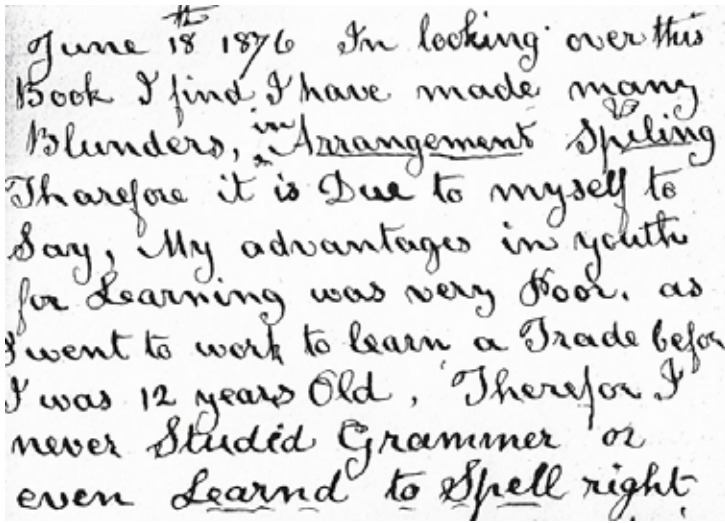 June 18th 1876 In looking over this
Book I find I have made many
Blunders, in Arrangement Spelling
Tharefore it is Due to myself to
Say, My advantages in youth
for Learning was very Poor. as
I went to work to learn a Trade before
I was 12 years Old, Therefor I
never Studid Grammer or
even Learnd to Spell right